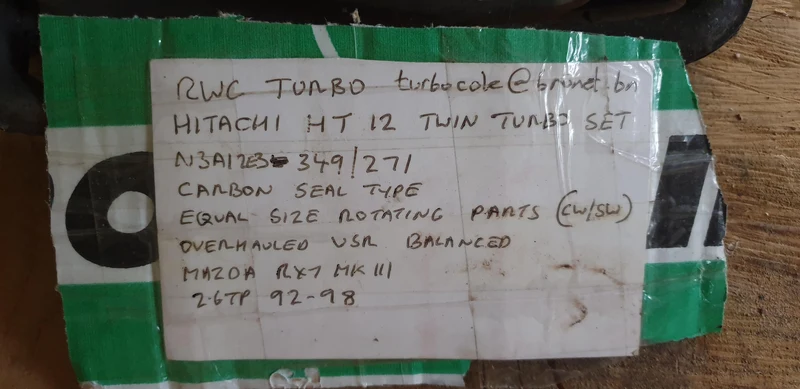 RWC TURBO turbocole@brunet.bn
HITACHI HT 12 TWIN TURBO SET
349/271
CARBON SEAL TYPE
EQUAL SIZE ROTATING PARTS (CW/SW)
OVERHAULED VSR BALANCED
MAZDA RX7 MK III
2.6TP 92-98